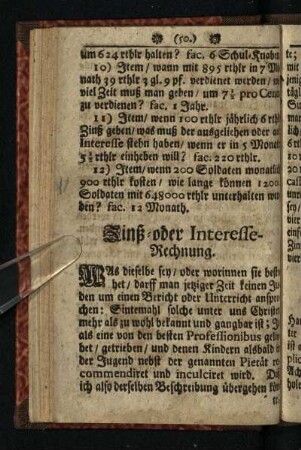 (50.)
um 624 rthlr halten? fac. 6 Schul-Knabn
10) Item/ wann mit 895 rthlr in 7 Mo
nath 39 rthlr 3 gl. 9 pf. verdienet werden/ w
viel Zeit muß man geben/ um 7½ pro Cen
zu verdienen? fac. 1 Jahr.
11) Item/ wenn 100 rthlr jährlich 6 rth
Zinß geben/ was muß der ausgeliehen oder a
Interesse stehn haben/ wenn er in 5 Monat
5½ rthlr einheben will? fac. 220 rthlr.
12) Item/ wenn 200 Soldaten monatlich
900 rthlr kosten/ wie lange können 1200
Soldaten mit 648000 rthlr unterhalten wer
den? fac. 12 Monath.
Zinß-oder Interesse-
Rechnung.
WAs dieselbe sey/ oder worinnen sie beste
het/ darff man jetziger Zeit keinen Ju
den um einen Bericht oder Unterricht anspre
chen: Sintemahl solche unter uns Christen
mehr als zu wohl bekannt und gangbar ist; J
als eine von den besten Professionibus gelie
het/ getrieben/ und denen Kindern alsbald in
der Jugend nebst der genannten Pietät re
commendiret und inculciret wird. Da
ich also derselben Beschreibung übergehen kön